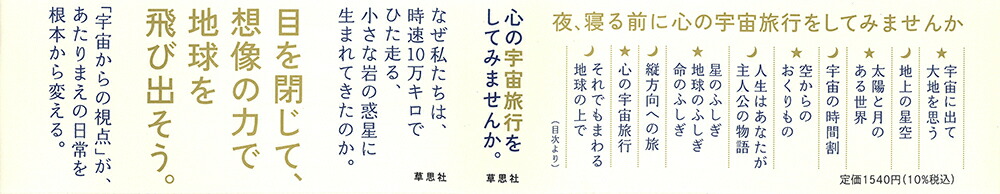 夜、寝る前に心の宇宙旅行をしてみませんか
★
宇宙に出て
大地を思う
☾
地上の星空
★
太陽と月の
ある世界
☾
宇宙の時間割
★
空からの
おくりもの
☾
人生はあなたが
主人公の物語
★
星のふしぎ
地球のふしぎ
命のふしぎ
☾
縦方向への旅
★
心の宇宙旅行
☾
それでもまわる
地球の上で
(目次より)
定価1540円(10%税込)
心の宇宙旅行を
してみませんか。
草思社
なぜ私たちは、
時速10万キロで
ひた走る、
小さな岩の惑星に
生まれてきたのか。
草思社
目を閉じて、
想像の力で
地球を
飛び出そう。
「宇宙からの視点」が、
あたりまえの日常を
根本から変える。